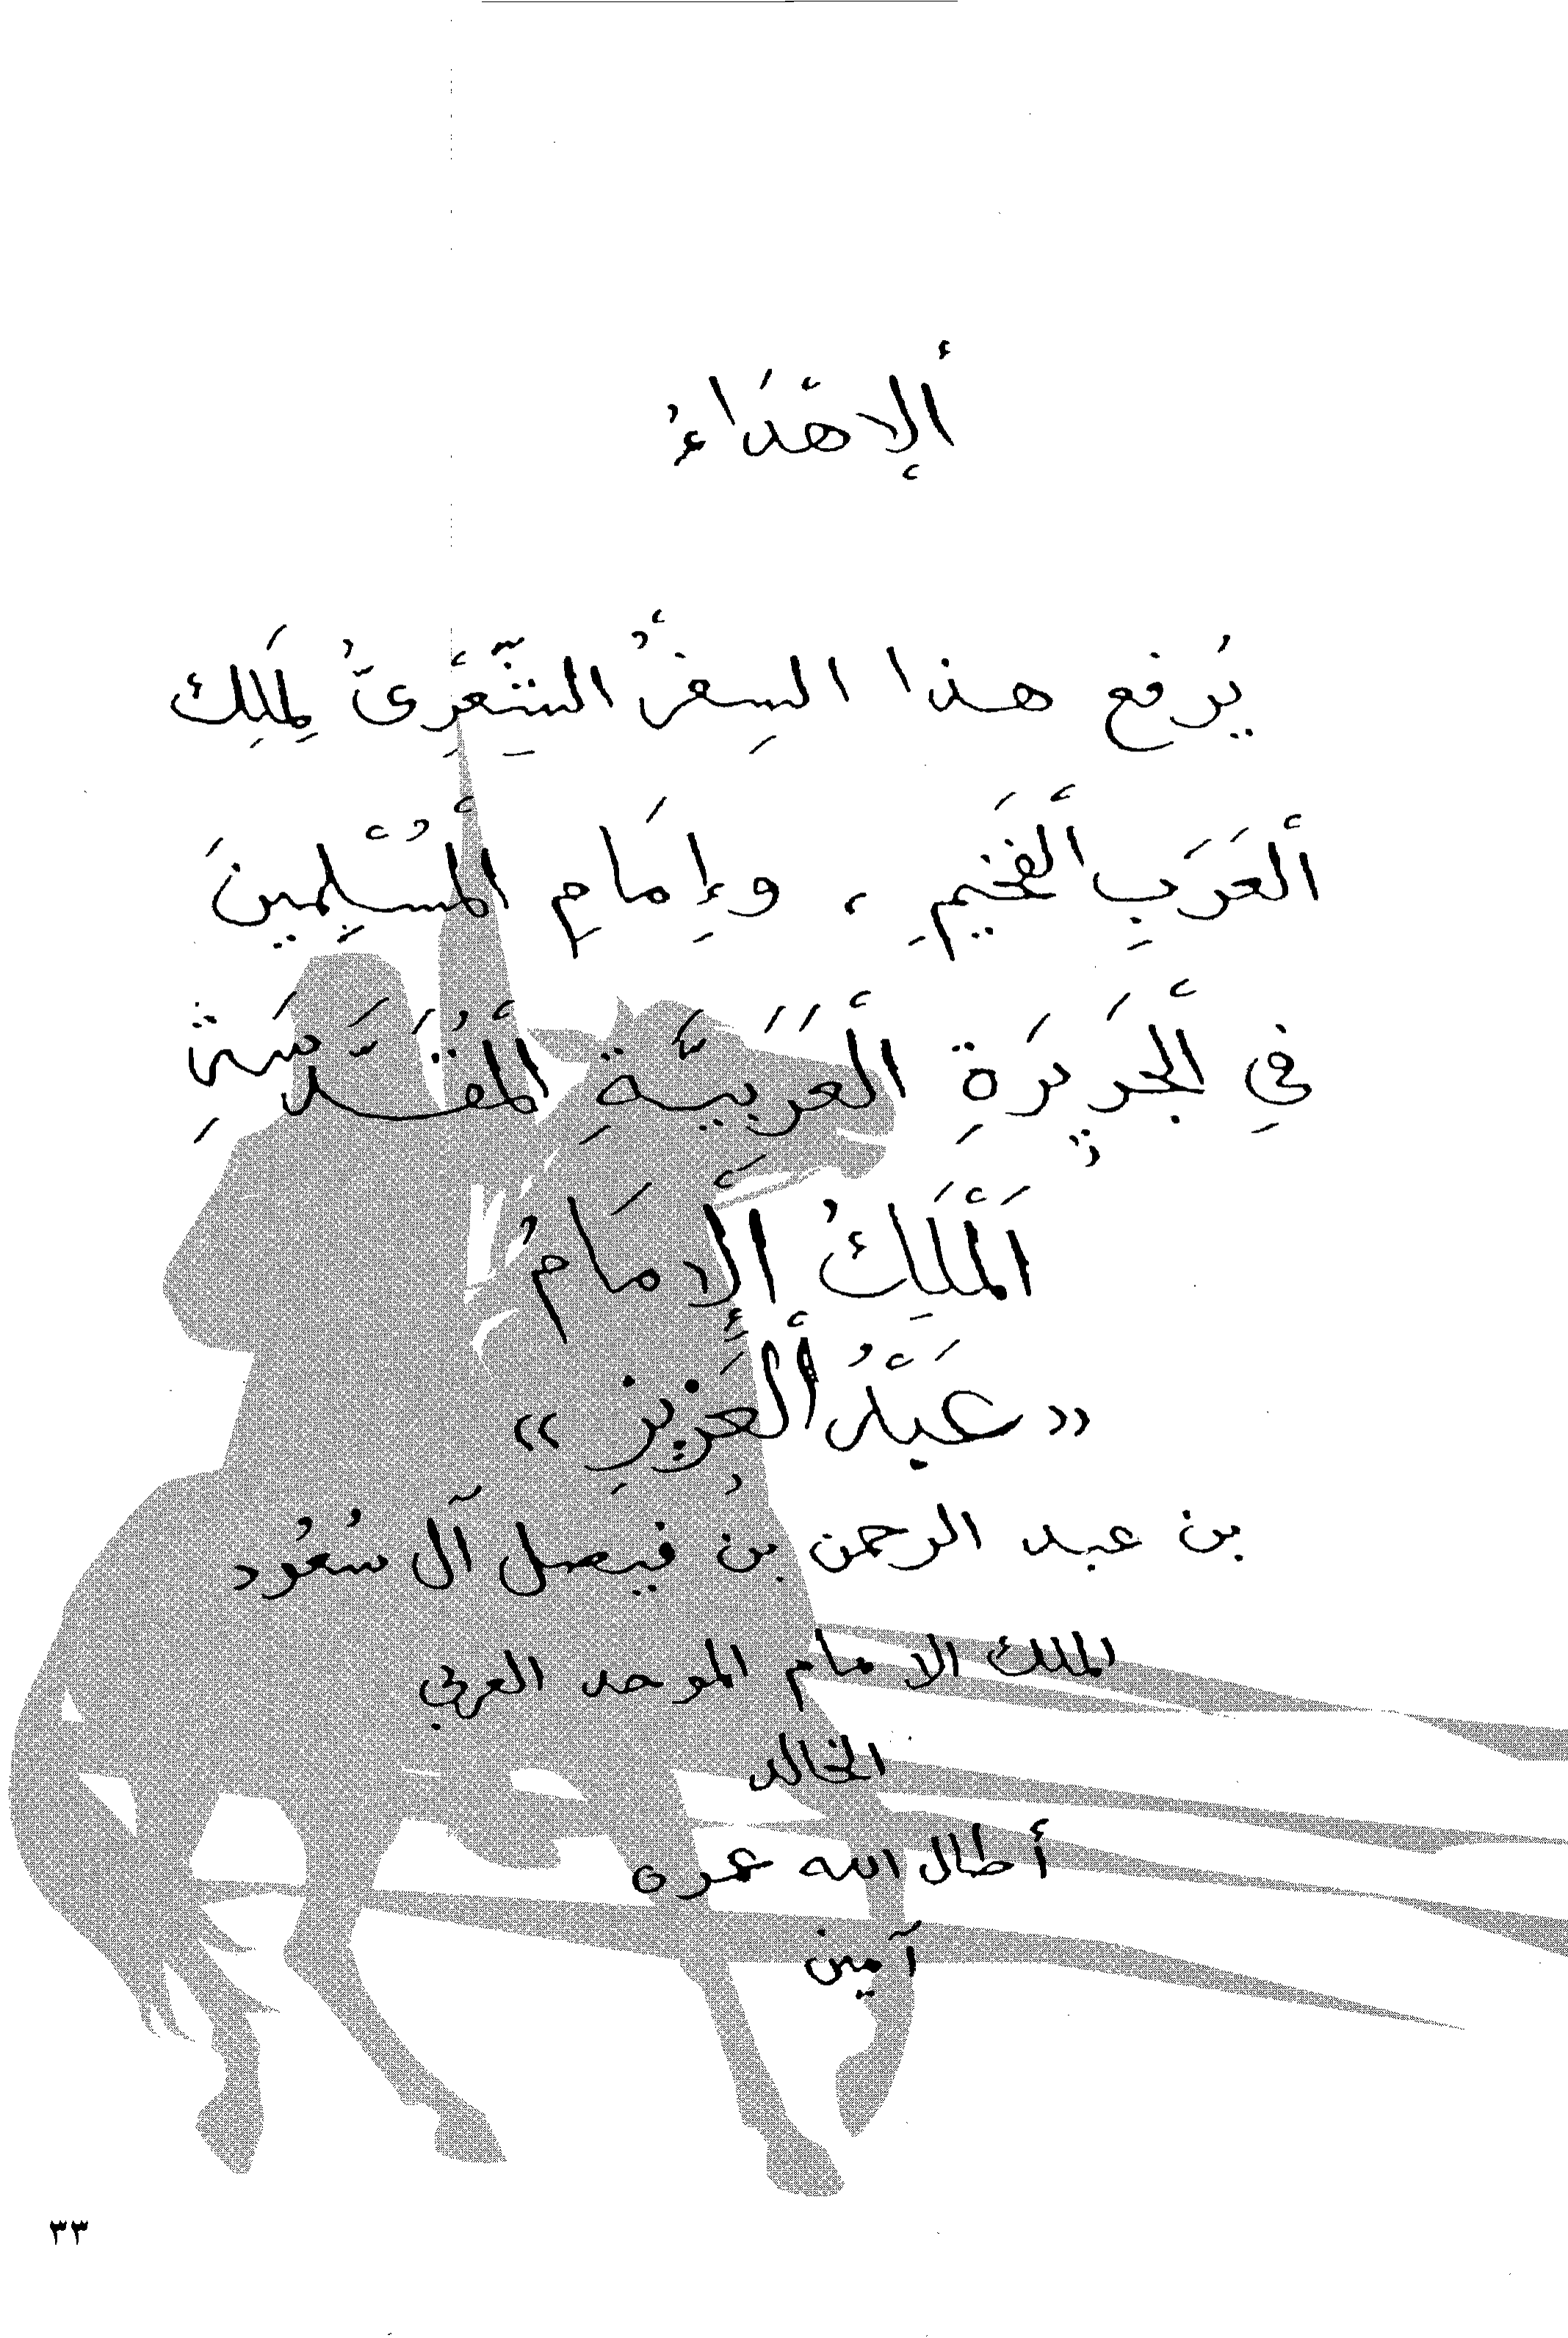 ألإهْدَاءُ
يُرفع هذا السِفْرُ الشِّعْرِىُّ لِمَلِك
ألعَرَبِ ألفَخَيمِ ، وإِمَامِ ألمُسْلِمِينَ
في ألجَزِيرَةِ ألعَرَبِيَّةِ ألمُقَدَّسَةِ
اَلْمَلِكُ الإمَامُ
« عَبْدُ ألعَزِيزِ »
بن عبد الرحمن بنُ فيصل آل سُعُود
الملك الامام الموحد العربي
الخالد
أطال الله عمره
آمين
٣٣